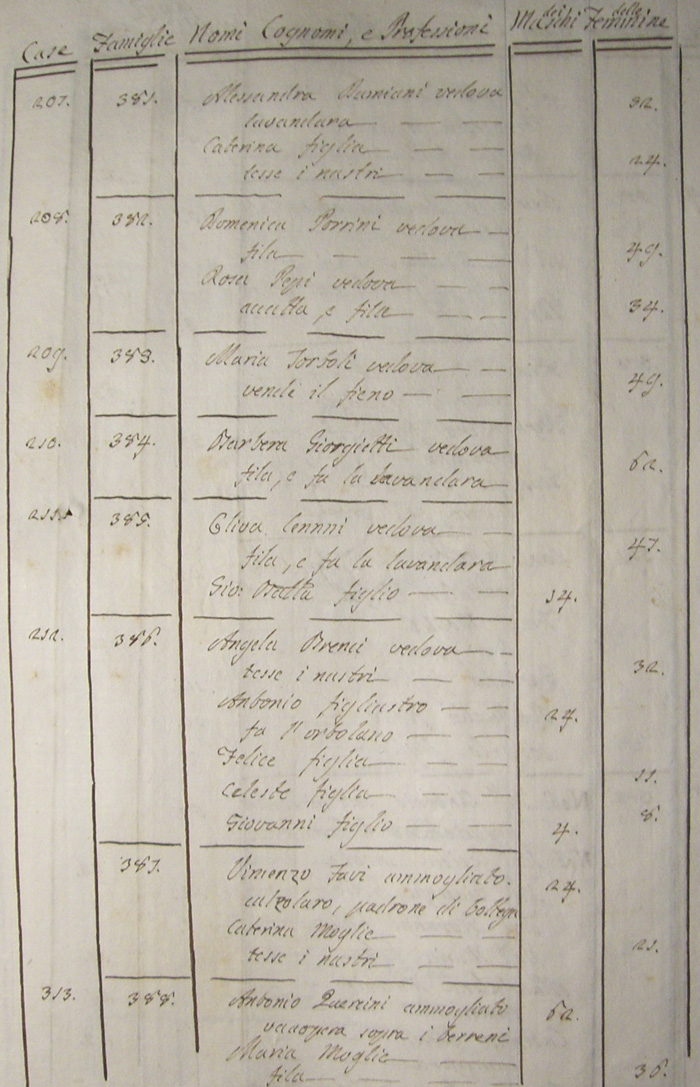 Case Famiglie Nomi Cognomi, e Professioni dei Maschi delle Femmine
207. 381. Alessandra Damiani vedova 32.
lavandara
Caterina figlia 24.
tesse i nastri
208. 382. Domenica Porrini vedova
fila 49.
Rosa Pepi vedova
accatta, e fila 34.
209. 383. Maria Tortoli vedova
vende il fieno 49.
210. 384. Barbera Giorgietti vedova
fila, e fa la lavandara 62.
211. 385. Oliva Cennni vedova
fila, e fa la lavandara 47.
Gio: Batta figlio 14.
212. 386. Angela Brenci vedova
tesse i nastri 32.
Antonio figliastro 24.
fa l'ortolano
Felice figlia 11.
Celeste figlia 8.
Giovanni figlio 4.
387. Vincenzo Favi ammogliato. 24.
calzolaro, padrone di bottega
Caterina Moglie 21.
tesse i nastri
313. 388. Antonio Quercini ammogliato 62.
sopra i terreni
Maria Moglie
fila 36.